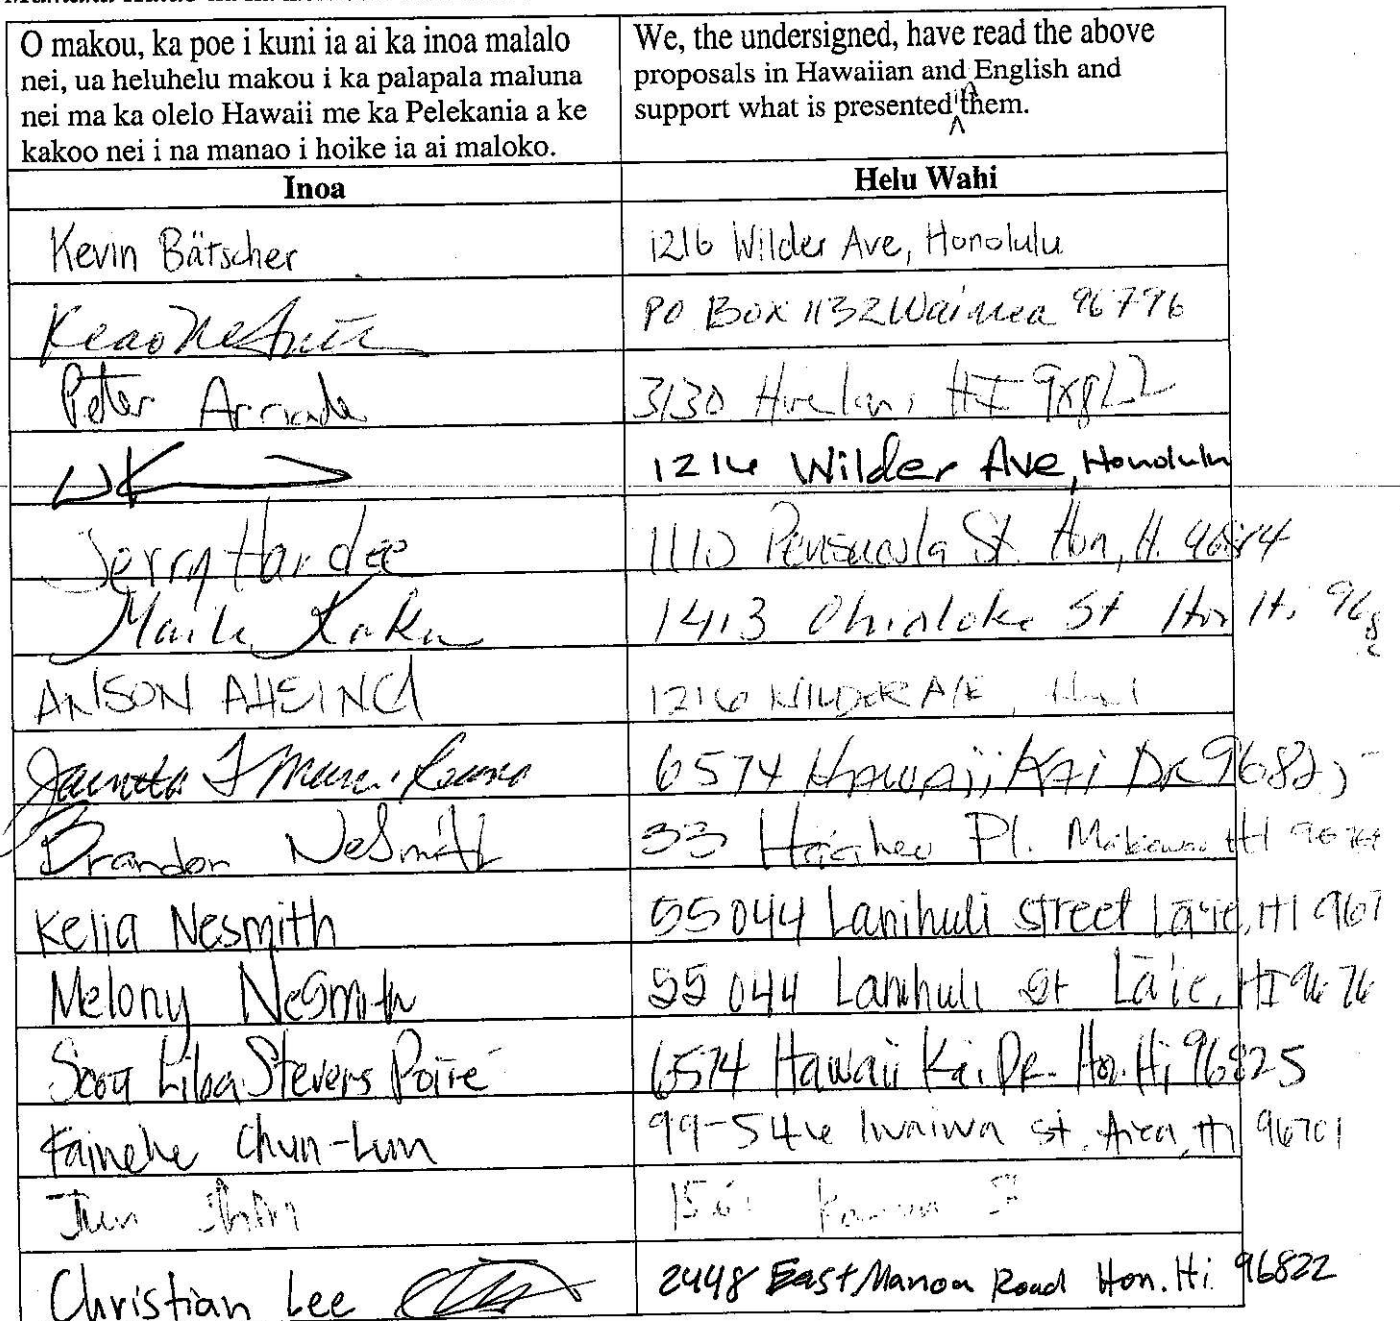 O makou, ka poe i kuni ia ai ka inoa malalo
nei, ua heluhelu makou i ka palapala maluna
nei ma ka olelo Hawaii me ka Pelekania a ke
kakoo nei i na manao i hoike ia ai maloko.
We, the undersigned, have read the above
proposals in Hawaiian and English and
support what is presented in them.
Inoa Helu Wahi
Kevin Bätscher 1216 Wilder Ave, Honolulu
Keao NeSmith PO Box 1132 Waimea 96796
Peter 3130 HI
1216 Wilder Ave, Honolulu
Jerry Hardee 1110 Pensacola St. Hon, H.
Maile Kaku 1413 St Hon Hi
ANSON AHEING 1216 WILDER AVE,
6574 Hawaii Kai Dr 96825
Brandon NeSmith 33 Pl. HI
Kelia Nesmith 55044 Lanihuli street Lāʻie, HI 967
Melony NeSmith 55 044 Lanihuli St Lāʻie, HI 9676
Stevens 6574 Hawaii Kai Dr. Hon. Hi 96825
Chun-Lum 99-546 Iwaiwa st. Aiea, HI 96701
Christian Lee 2448 East Manoa Road Hon. Hi 96822